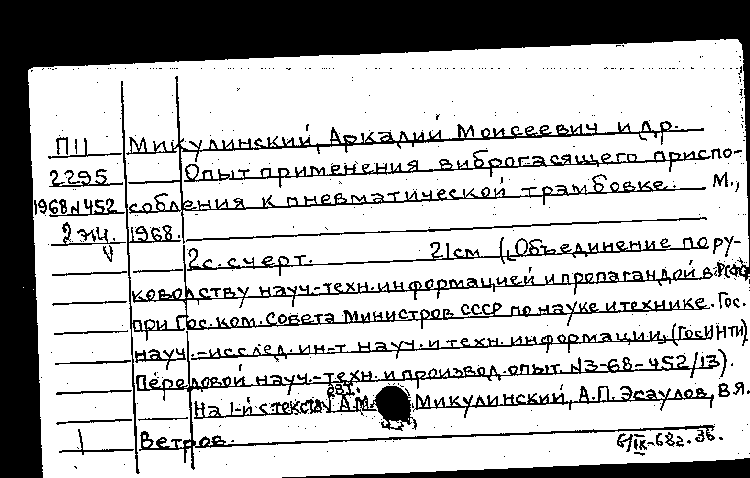 П11 Микулинский, Аркадий Моисеевич и др.
2295 Опыт применения виброгасящего приспо-
1968 N452 собления к пневматической трамбовке. М.,
2 эк. 1968.
V 2с. с черт. 21см (Объединение по ру-
ководству науч.-техн. информацией и пропагандой в РСФСР
при Гос. ком. Совета Министров СССР по науке и технике. Гос.
науч.-исслед. ин-т науч. и техн. информации, (ГОСИНТИ)
Передовой науч.-техн. и производ. опыт. N3-68-452/13).
На 1-й с текста авт. А.М. Микулинский, А.П. Эсаулов, В.Я.
1 Ветров.
6/IX-68г. ЗБ.